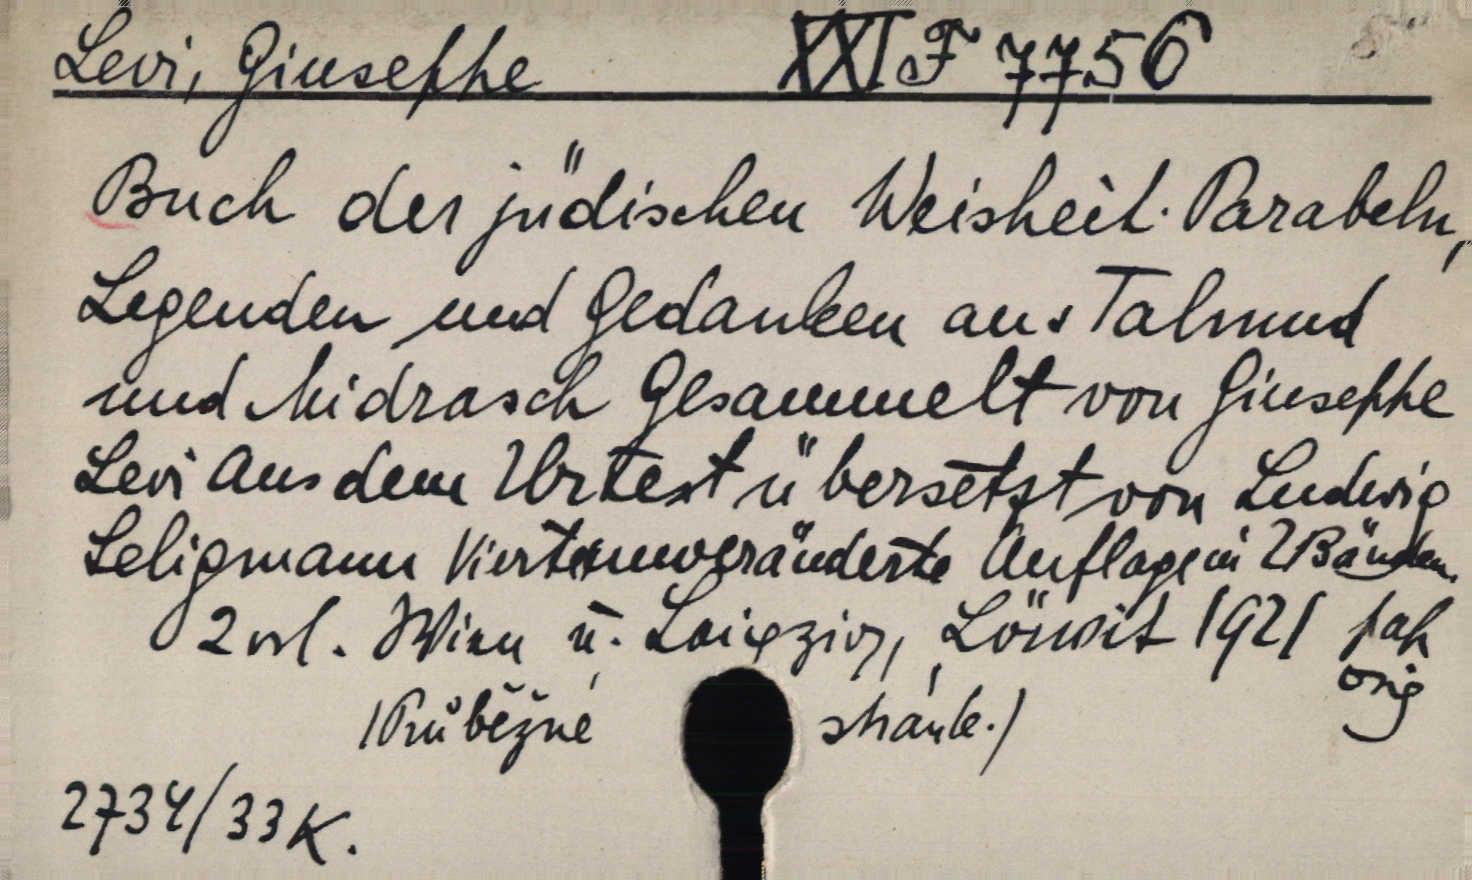 Levi, Giuseppe XXI F 7756
Buch der jüdischen Weisheit. Parabeln,
Legenden und Gedanken aus Talmud
und Midrasch Gesammelt von Giuseppe
Levi Aus dem Urtext übersetzt von Ludwig
Seligmann Vierte unveränderte Auflage in 2 Bänden.
2 vol. Wien u. Leipzig, Löwit 1921 pap
orig
(Průběžné stránk.)
2734/33 K.